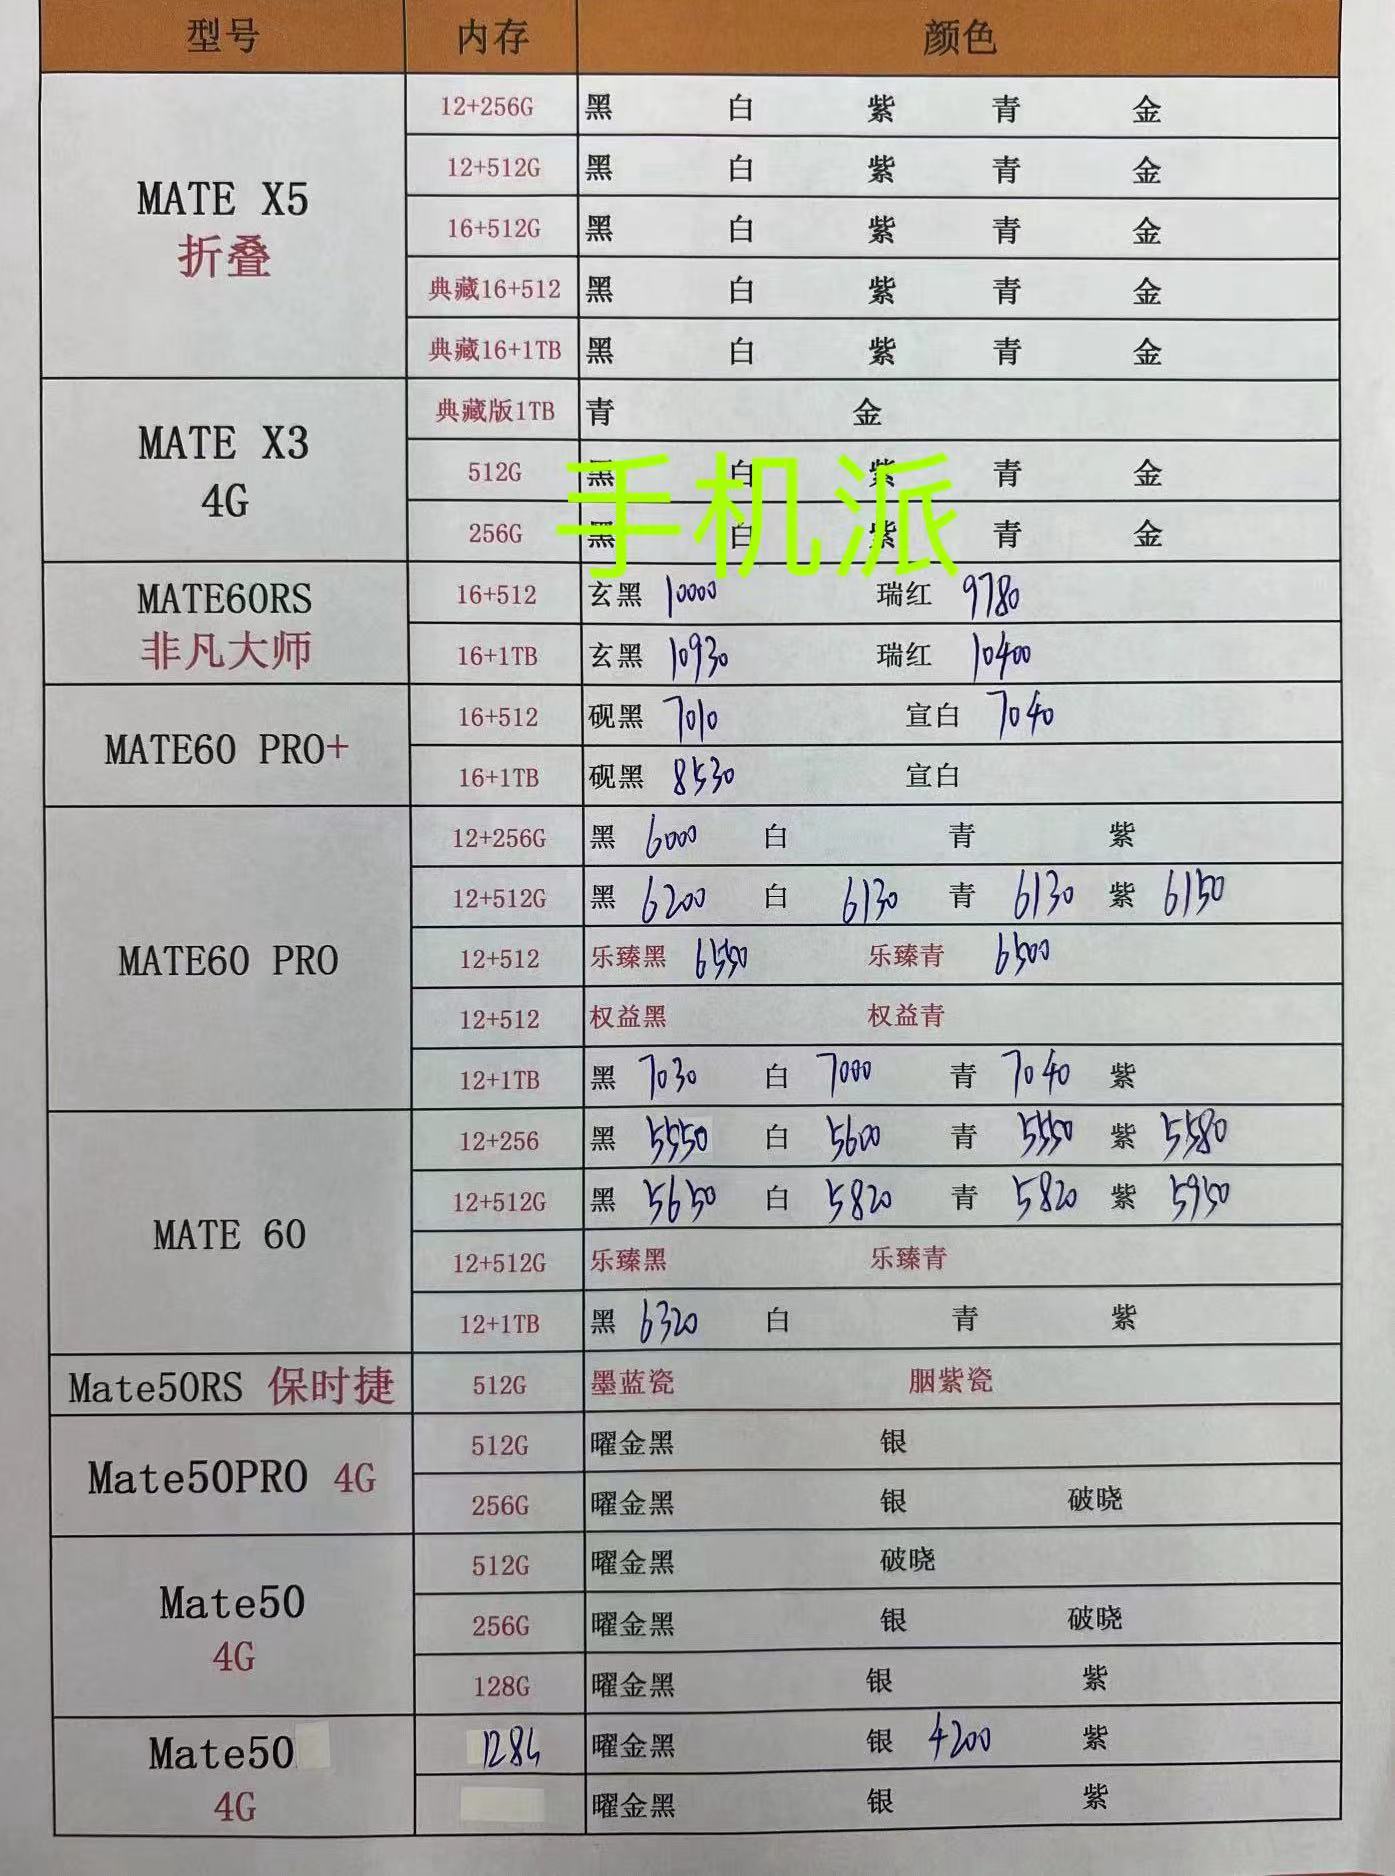 型号 内存 颜色
MATE X5
折叠
12+256G 黑 白 紫 青 金
12+512G 黑 白 紫 青 金
16+512G 黑 白 紫 青 金
典藏16+512 黑 白 紫 青 金
典藏16+1TB 黑 白 紫 青 金
MATE X3
4G
典藏版1TB 青 金
512G 黑 白 紫 青 金
256G 黑 白 紫 青 金
手机派
MATE60RS
非凡大师
16+512 玄黑 10000 瑞红 9780
16+1TB 玄黑 10930 瑞红 10400
MATE60 PRO+
16+512 砚黑 7010 宣白 7040
16+1TB 砚黑 8530 宣白
MATE60 PRO
12+256G 黑 6000 白 青 紫
12+512G 黑 6200 白 6130 青 6130 紫 6150
12+512 乐臻黑 6550 乐臻青 6500
12+512 权益黑 权益青
12+1TB 黑 7030 白 7000 青 7040 紫
MATE 60
12+256 黑 5550 白 5600 青 5550 紫 5580
12+512G 黑 5650 白 5820 青 5820 紫 5950
12+512G 乐臻黑 乐臻青
12+1TB 黑 6320 白 青 紫
Mate50RS 保时捷 512G 墨蓝瓷 胭紫瓷
Mate50PRO 4G
512G 曜金黑 银
256G 曜金黑 银 破晓
Mate50
4G
512G 曜金黑 破晓
256G 曜金黑 银 破晓
128G 曜金黑 银 紫
Mate50
4G
128G 曜金黑 银 4200 紫
曜金黑 银 紫